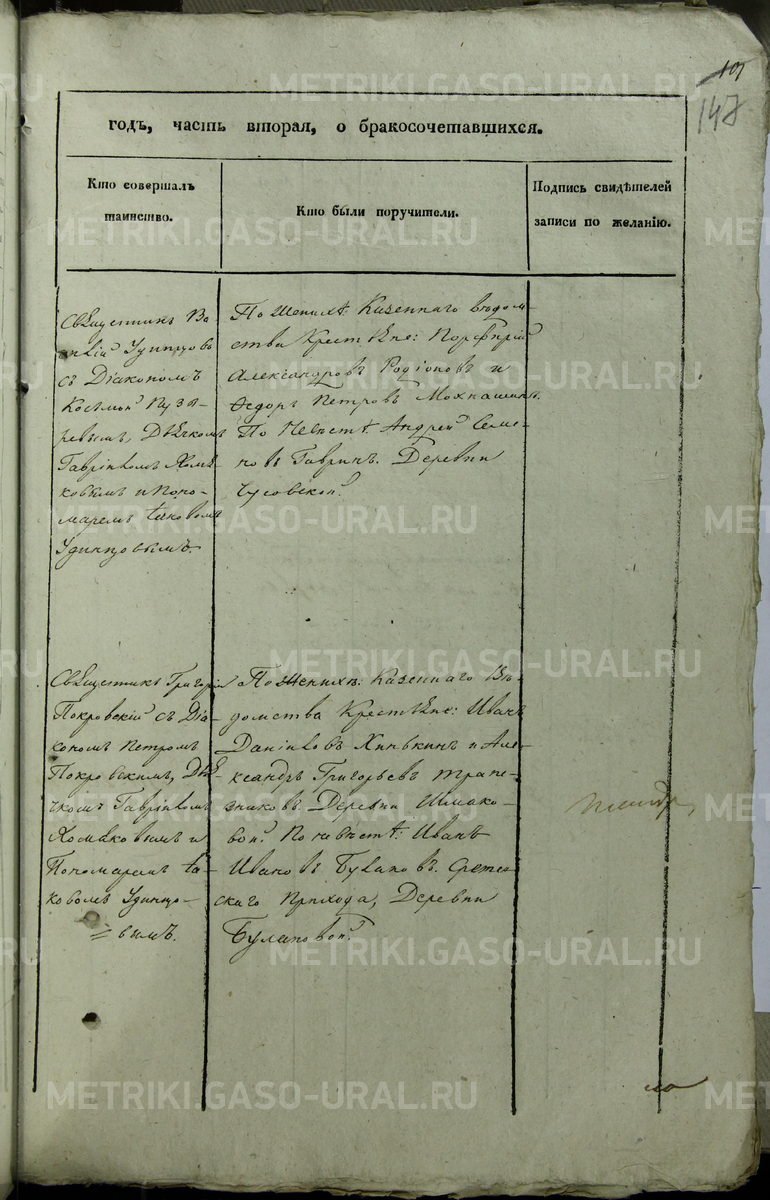 101
147
годъ, часть вторая, о бракосочетавшихся.
Кто совершалъ
таинство.
Кто были поручители.
Подпись свидѣтелей
записи по желанію.
Священникъ Ва
силій Удинцовъ
съ Діакономъ
Косьмой Пузы-
ревымъ, Дьячкомъ
Гавріиломъ Хомя-
ковымъ и Поно-
маремъ Іаковомъ
Удинцовымъ.
По женихѣ: Казеннаго вѣдом-
ства Крестьяне: Порфирій
Александровъ Родіоновъ и
Ѳедоръ Петровъ
По Невѣстѣ Андрей Семе-
новъ Гавринъ. Деревни
Чусовской.
Священникъ Григорій
Покровскій съ Діа-
кономъ Петромъ
Покровскимъ, Дья-
чкомъ Гавріиломъ
Хомяковымъ и
Пономаремъ Іа-
ковомъ Удинцо-
вымъ.
По Женихѣ: Казеннаго Вѣ-
домства Крестьяне: Иванъ
Даниловъ Хинькинъ и Але-
ксандръ Григорьевъ Трапе-
зниковъ Деревни Шмако-
вой. По невѣстѣ: Иванъ
Ивановъ Булановъ. Сретен-
скаго Прихода, Деревни
Булановой.
METRIKI.GASO-URAL.RU